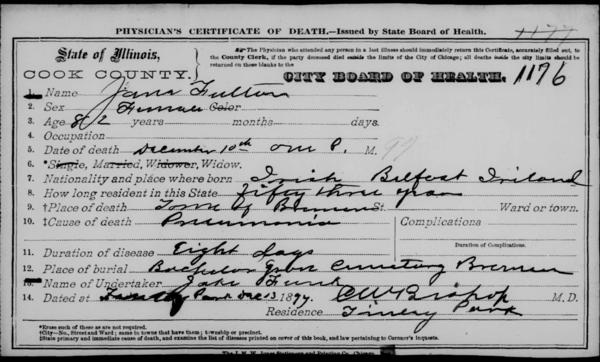 PHYSICIAN'S CERTIFICATE OF DEATH.—Issued by State Board of Health. 1177
State of Illinois,
COOK COUNTY.
The Physician who attended any person in a last illness should immediately return this Certificate, accurately filled out, to the County Clerk, if the party deceased died outside the limits of the City of Chicago; all deaths inside the city limits should be returned on those blanks to the
CITY BOARD OF HEALTH. 1176
1. Name Jane Fulton
2. Sex Female Color
3. Age 82 years months days.
4. Occupation
5. Date of death December 10th one P. M. 97
6. *Single, Married, Widower, Widow.
7. Nationality and place where born Irish Belfast Ireland
8. How long resident in this State Fifty three years
9. †Place of death Town of Bremen St. Ward or town.
10. ‡Cause of death Pneumonia Complications
11. Duration of disease Eight days Duration of Complications.
12. Place of burial Bachelor Grove Cemetery Bremen
13. Name of Undertaker Jake Funk
14. Dated at Park Dec 13 1897. CW Bishop M. D.
Residence Tinley Park
*Erase such of these as are not required.
†City—No., Street and Ward; same in towns that have them; township or precinct.
‡State primary and immediate cause of death, and examine the list of diseases printed on cover of this book, and law pertaining to Coroner's Inquests.
The J. M. W. Jones Stationery and Printing Co., Chicago.